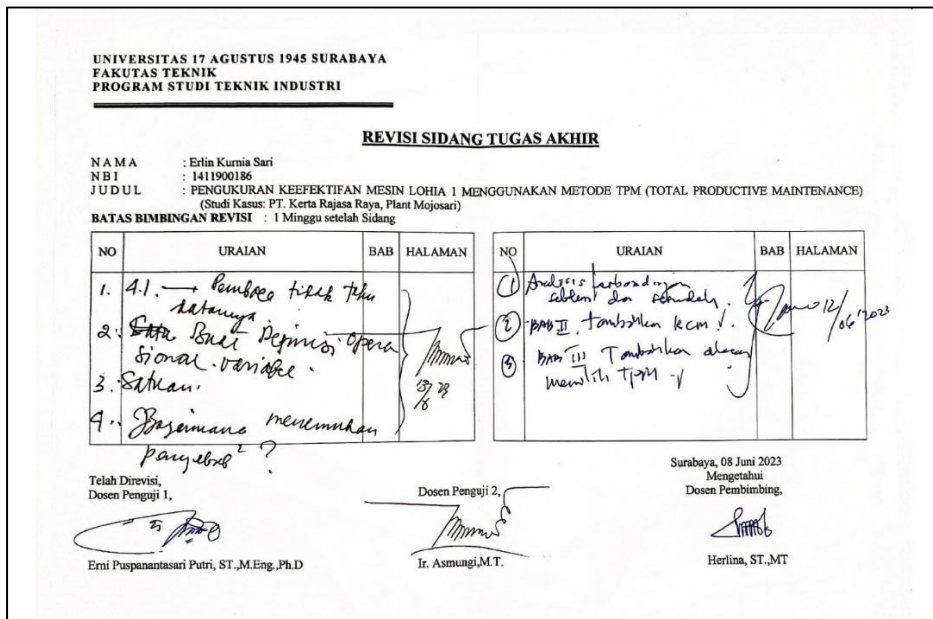 UNIVERSITAS 17 AGUSTUS 1945 SURABAYA
FAKUTAS TEKNIK
PROGRAM STUDI TEKNIK INDUSTRI
REVISI SIDANG TUGAS AKHIR
NAMA : Erlin Kurnia Sari
NBI : 1411900186
JUDUL : PENGUKURAN KEEFEKTIFAN MESIN LOHIA 1 MENGGUNAKAN METODE TPM (TOTAL PRODUCTIVE MAINTENANCE)
(Studi Kasus: PT. Kerta Rajasa Raya, Plant Mojosari)
BATAS BIMBINGAN REVISI : 1 Minggu setelah Sidang
NO URAIAN BAB HALAMAN
1. 4.1. → Pembaca tidak tahu
datanya.
2. Buat Definisi Opera
sional variabel.
3. Satuan.
4. Bagaimana menemukan
penyebab² ?
13/6 23
NO URAIAN BAB HALAMAN
1 Analisis perbandingan
sebelum dan sesudah.
2 BAB II. Tambahkan RCM
3 BAB III Tambahkan alasan
memilih TPM
12/06/2023
Surabaya, 08 Juni 2023
Telah Direvisi,
Dosen Penguji 1,
Erni Puspanantasari Putri, ST.,M.Eng.,Ph.D
Dosen Penguji 2,
Ir. Asmungi,M.T.
Mengetahui
Dosen Pembimbing,
Herlina, ST.,MT